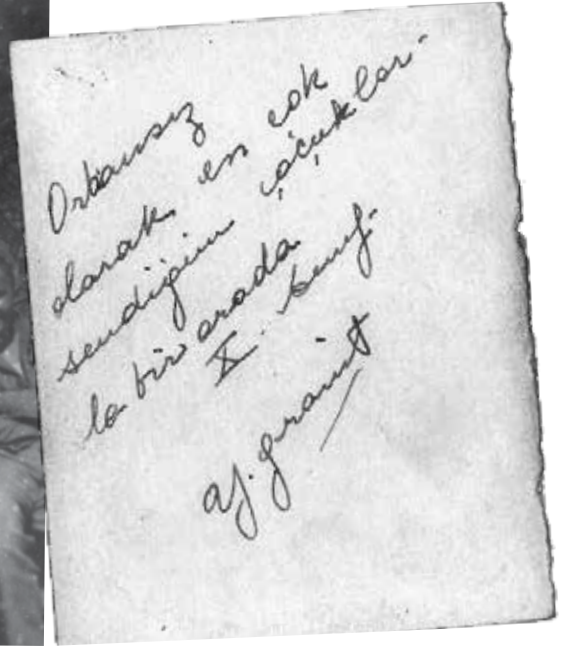 Orhansız
olarak en çok
sevdiğim çocuklar-
la bir arada
X. sınıf.